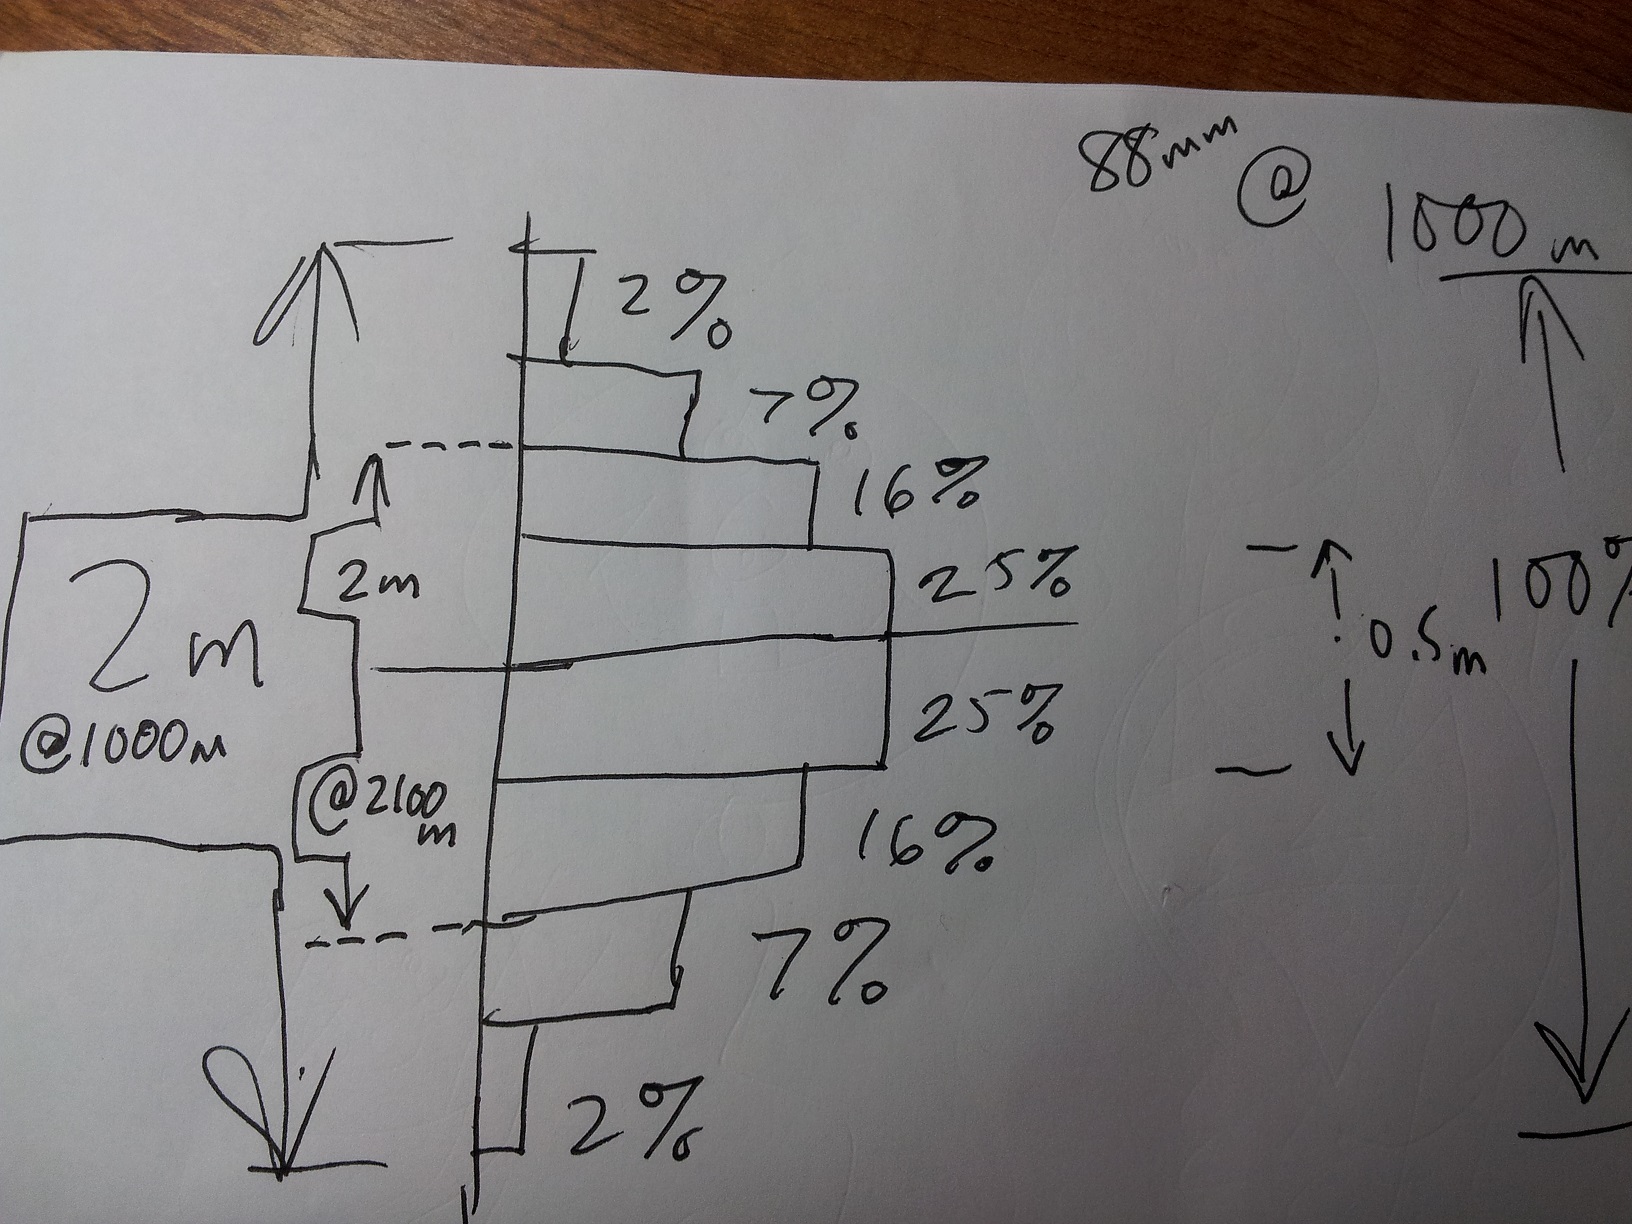 88mm @ 1000m
2%
7%
16%
25%
25%
16%
7%
2%
2m
@1000m
2m
@2100
m
0.5m
100%